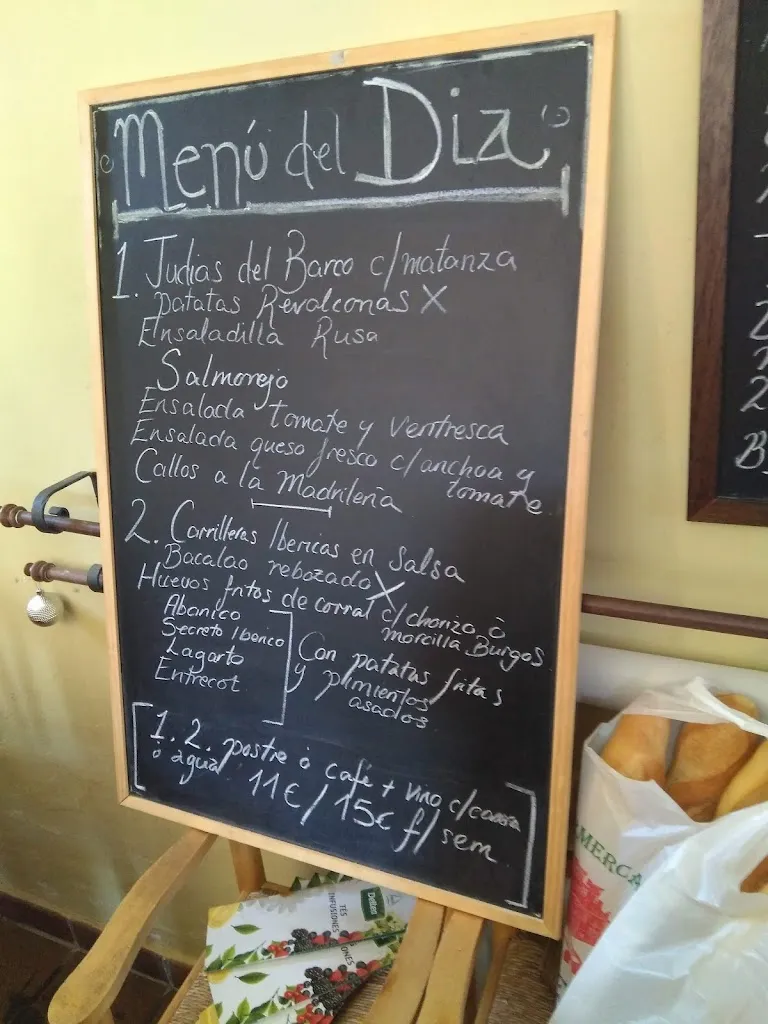 Menú del Dia
1. Judias del Barco c/matanza
patatas Revolconas X
Ensaladilla Rusa
Salmorejo
Ensalada tomate y Ventresca
Ensalada queso fresco c/anchoa y
tomate
Callos a la Madrileña
2. Carrilleras Ibericas en salsa
Bacalao rebozado X
Huevos fritos de corral c/chorizo ò
morcilla Burgos
Abanico
Secreto Iberico
Lagarto
Entrecot
Con patatas fritas
y pimientos
asados
1. 2. postre ò café + vino c/casera
ò agua 11€/15€ f/sem
Delta
TÉS
INFUSIONES
MERCA